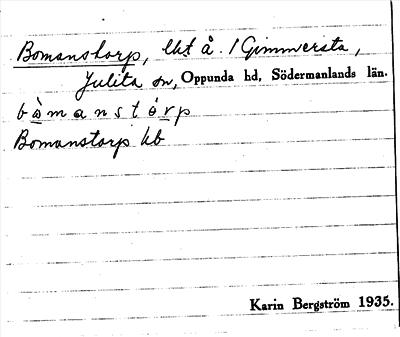 Bomanstorp, lht å. 1 Gimmersta,
Julita sn, Oppunda hd, Södermanlands län.
bòmanstórp
Bomanstorp kb
Karin Bergström 1935.